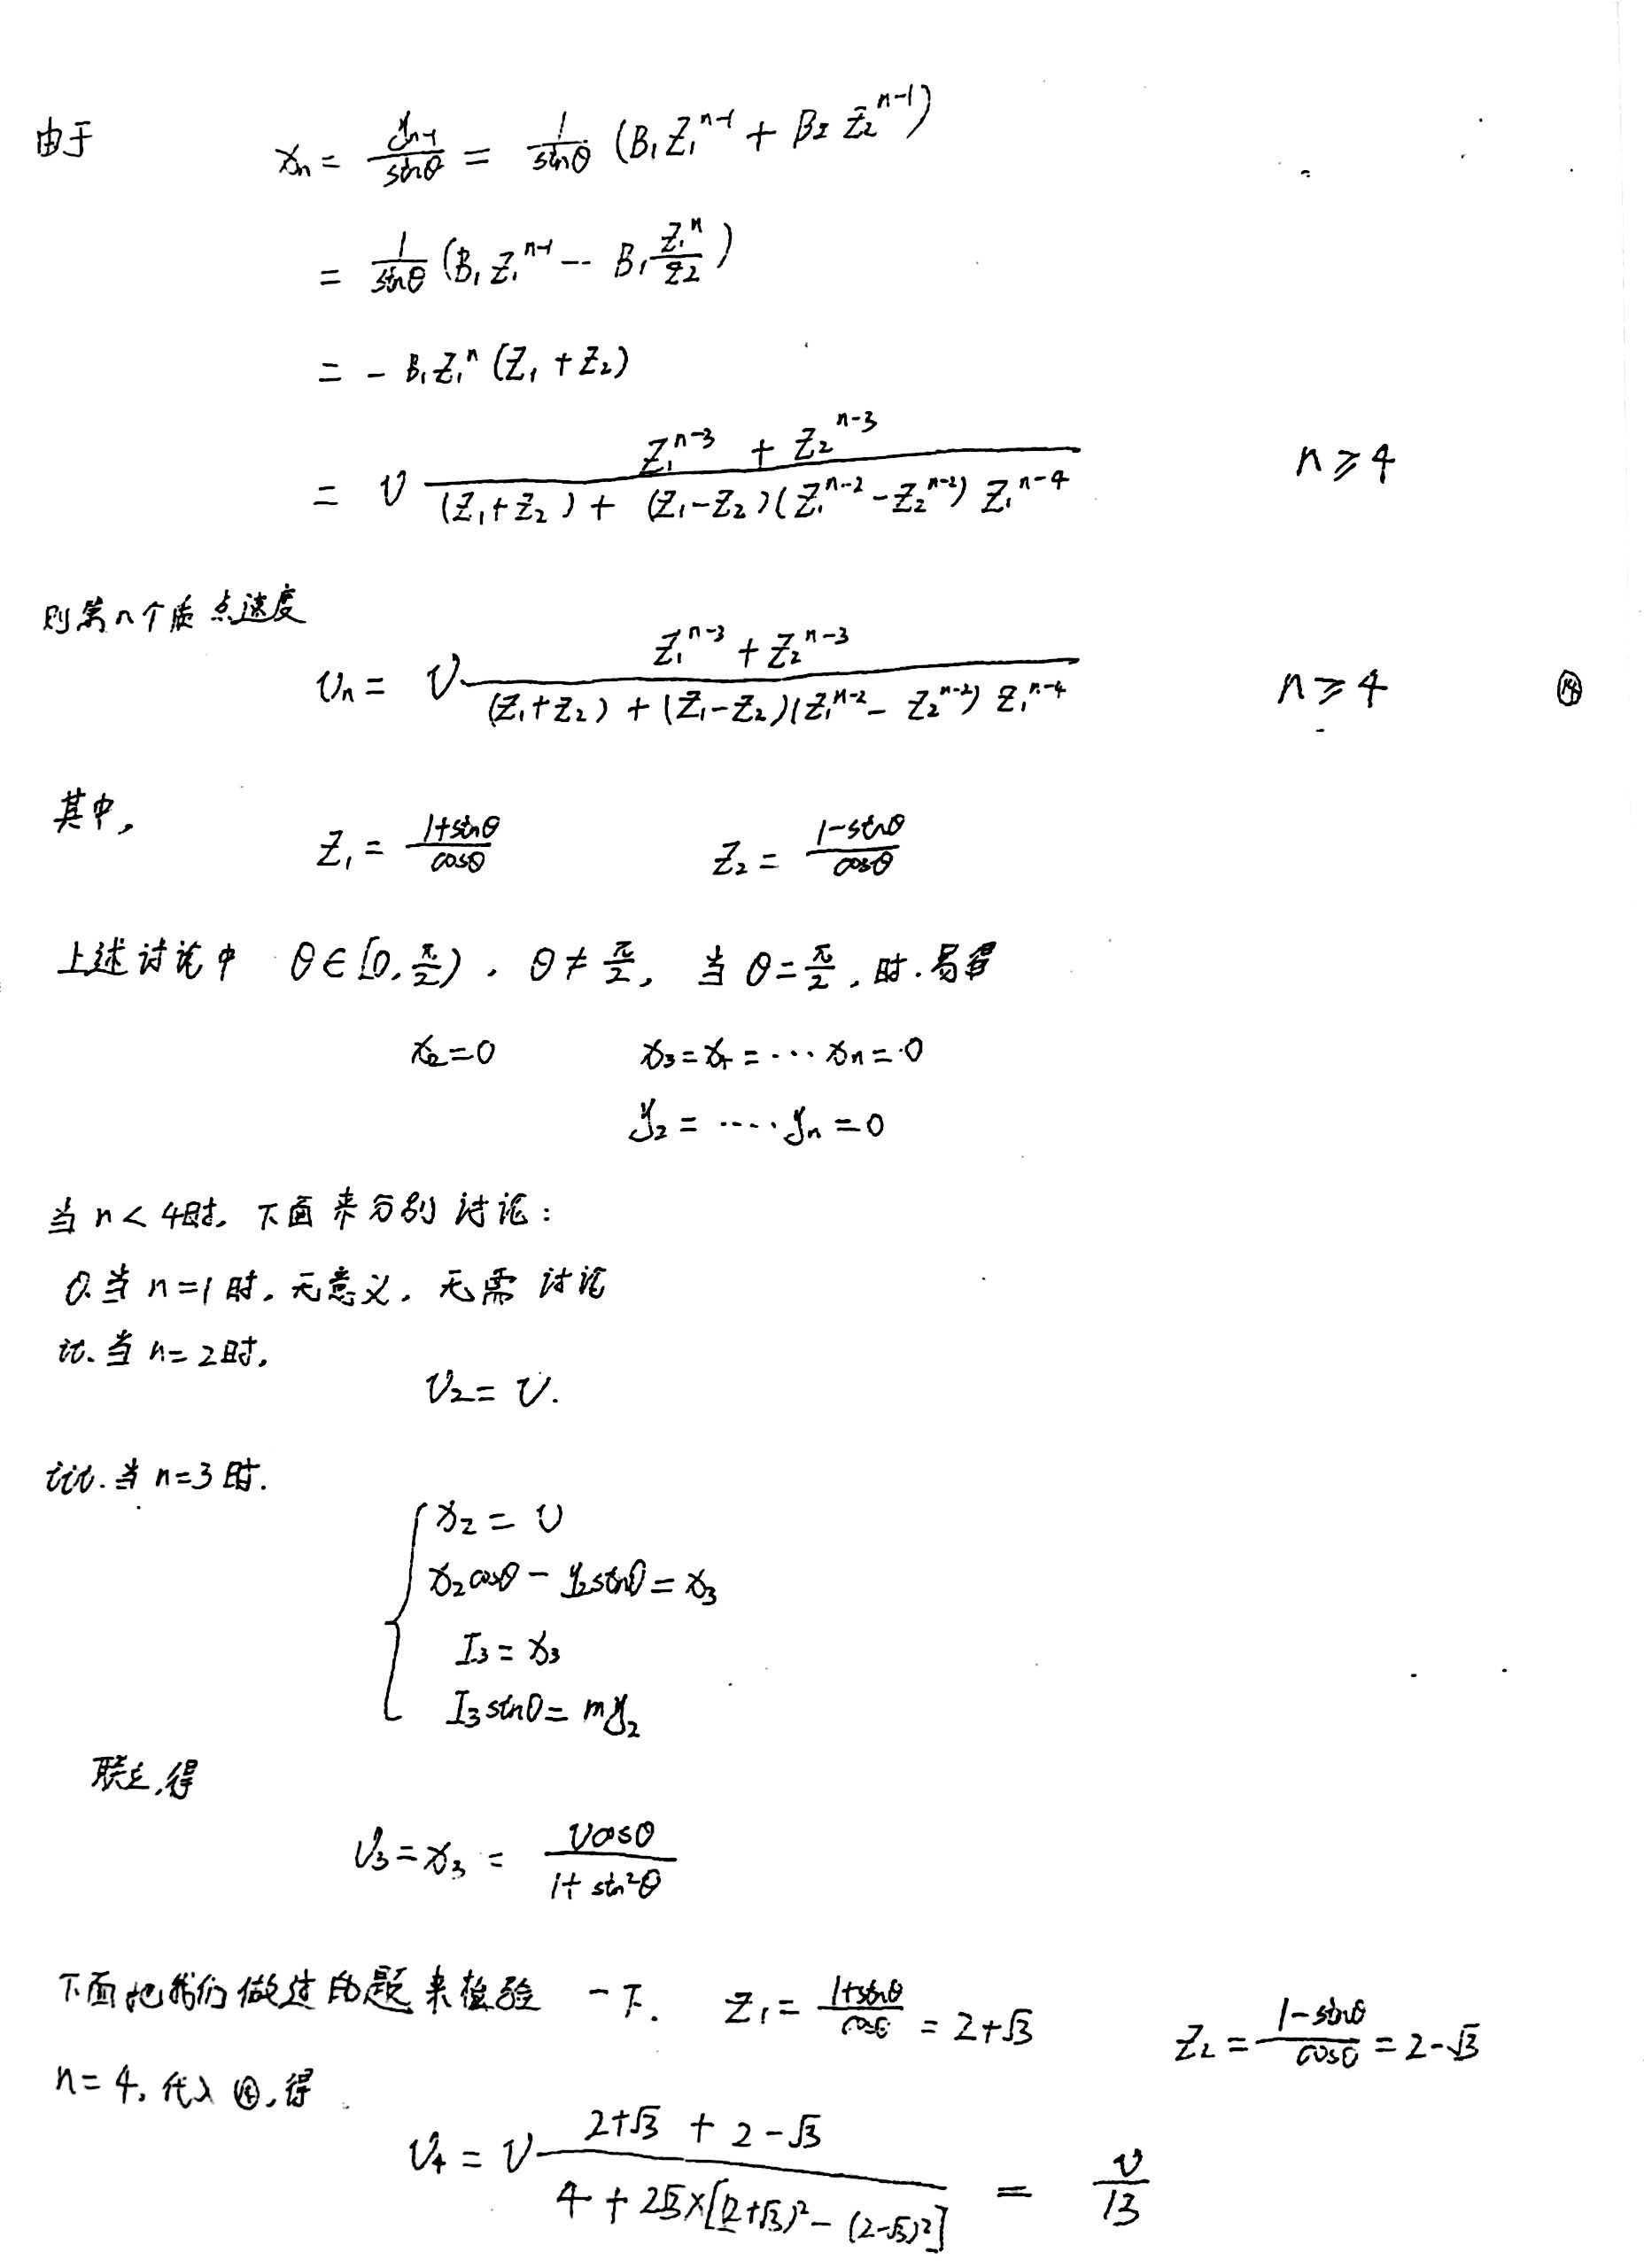 由于 xₙ = yₙ₋₁/sinθ = 1/sinθ (B₁Z₁ⁿ⁻¹ + B₂Z₂ⁿ⁻¹)
= 1/sinθ (B₁Z₁ⁿ⁻¹ -- B₁ Z₁ⁿ/Z₂)
= - B₁Z₁ⁿ (Z₁ + Z₂)
= v (Z₁ⁿ⁻³ + Z₂ⁿ⁻³)/((Z₁+Z₂) + (Z₁-Z₂)(Z₁ⁿ⁻² - Z₂ⁿ⁻²) Z₁ⁿ⁻⁴) n≥4
则第n个质点速度
vₙ = v (Z₁ⁿ⁻³ + Z₂ⁿ⁻³)/((Z₁+Z₂) + (Z₁-Z₂)(Z₁ⁿ⁻² - Z₂ⁿ⁻²) Z₁ⁿ⁻⁴) n≥4 ⑭
其中, Z₁ = (1+sinθ)/cosθ Z₂ = (1-sinθ)/cosθ
上述讨论中 θ∈[0, π/2), θ≠π/2, 当θ=π/2, 时.易得
x₂=0 x₃=x₄=···xₙ=0
y₂=····yₙ=0
当n<4时, 下面来分别讨论:
当n=1时, 无意义, 无需讨论
ii、当n=2时,
v₂=v.
iii.当n=3时.
x₂=v
x₂cosθ-y₂sinθ=x₃
I₃=x₃
I₃sinθ=my₂
联立,得
v₃=x₃= vcosθ/(1+sin²θ)
下面把我们做过的题来检验一下. Z₁=(1+sinθ)/cosθ=2+√3 Z₂=(1-sinθ)/cosθ=2-√3
n=4, 代入⑭,得
v₄ = v (2+√3 + 2-√3)/(4+2√3×[(2+√3)²-(2-√3)²]) = v/13